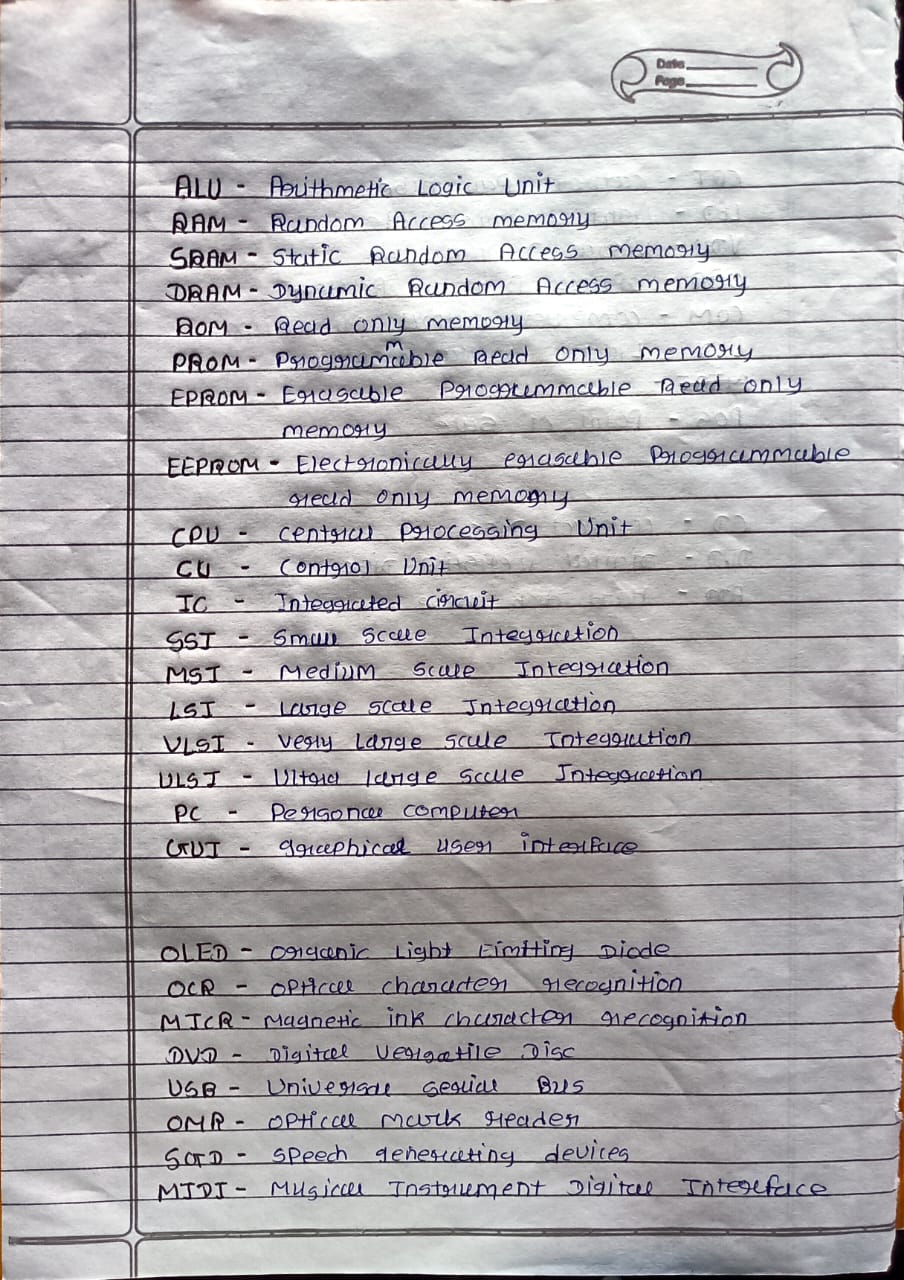 Date
Page
ALU - Arithmetic Logic Unit
RAM - Random Access memory
SRAM - Static Random Access memory
DRAM - Dynamic Random Access memory
ROM - Read only memory
PROM - Programmable Read only memory
EPROM - Erasable Programmable Read only
memory
EEPROM - Electronically erasable Programmable
read only memory
CPU - central Processing Unit
CU - Control Unit
IC - Integrated circuit
SSI - Small Scale Integration
MSI - Medium Scale Integration
LSI - Large Scale Integration
VLSI - Very Large Scale Integration
ULSI - Ultra large Scale Integration
PC - Personal computer
GUI - graphical user interface
OLED - Organic Light Eimtting Diode
OCR - OPtical character recognition
MICR - Magnetic ink character recognition
DVD - Digital Versatile Disc
USB - Universal serial Bus
OMR - OPtical mark reader
SGD - SPeech generating devices
MIDI - Musical Instrument Digital Interface